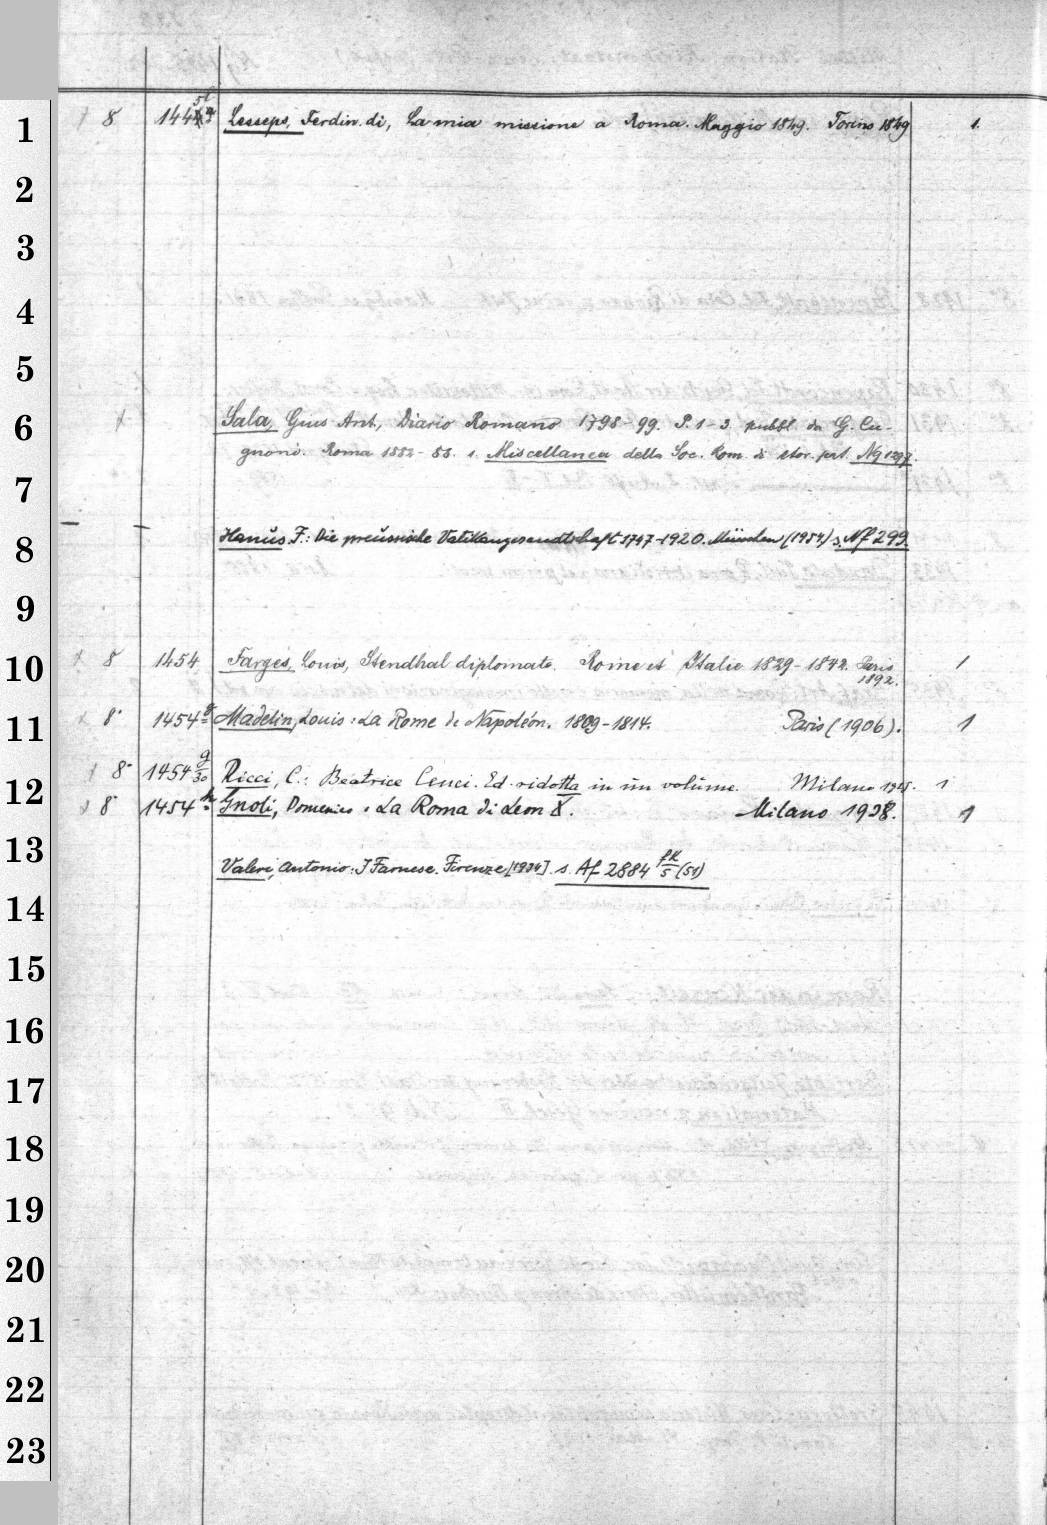 1 8 144 Lesseps, Ferdin. di, La mia missione a Roma. Maggio 1849. Torino 1849 1.
2
3
4
5
6 Sala, Gius Ant., Diario Romano 1798-99. P. 1-3 pubbl. da G. Cu-
gnoni. Roma 1882-88. s. Miscellanea della Soc. Rom. di stor. patr. Ng 1297.
7
8 Hanus, F.: Die preussische Vatikangesandtschaft 1747-1920. München (1954) s. Nf 299.
9
10 x 8 1454 Farges, Louis, Stendhal diplomate. Rome et Italie 1829-1842. Paris 1
1892.
11 x 8° 1454 g Madelin, Louis: La Rome de Napoléon. 1809-1814. Paris (1906). 1
12 8° 1454 g/30 Ricci, C.: Beatrice Cenci. Ed. ridotta in un volume. Milano 1925. 1
x 8° 1454 h Gnoli, Domenico: La Roma di Leon X. Milano 1938. 1
13 Valeri, Antonio: I Farnese. Firenze [1934]. s. Af 2884 fk/5 (51)
14
15
16
17
18
19
20
21
22
23